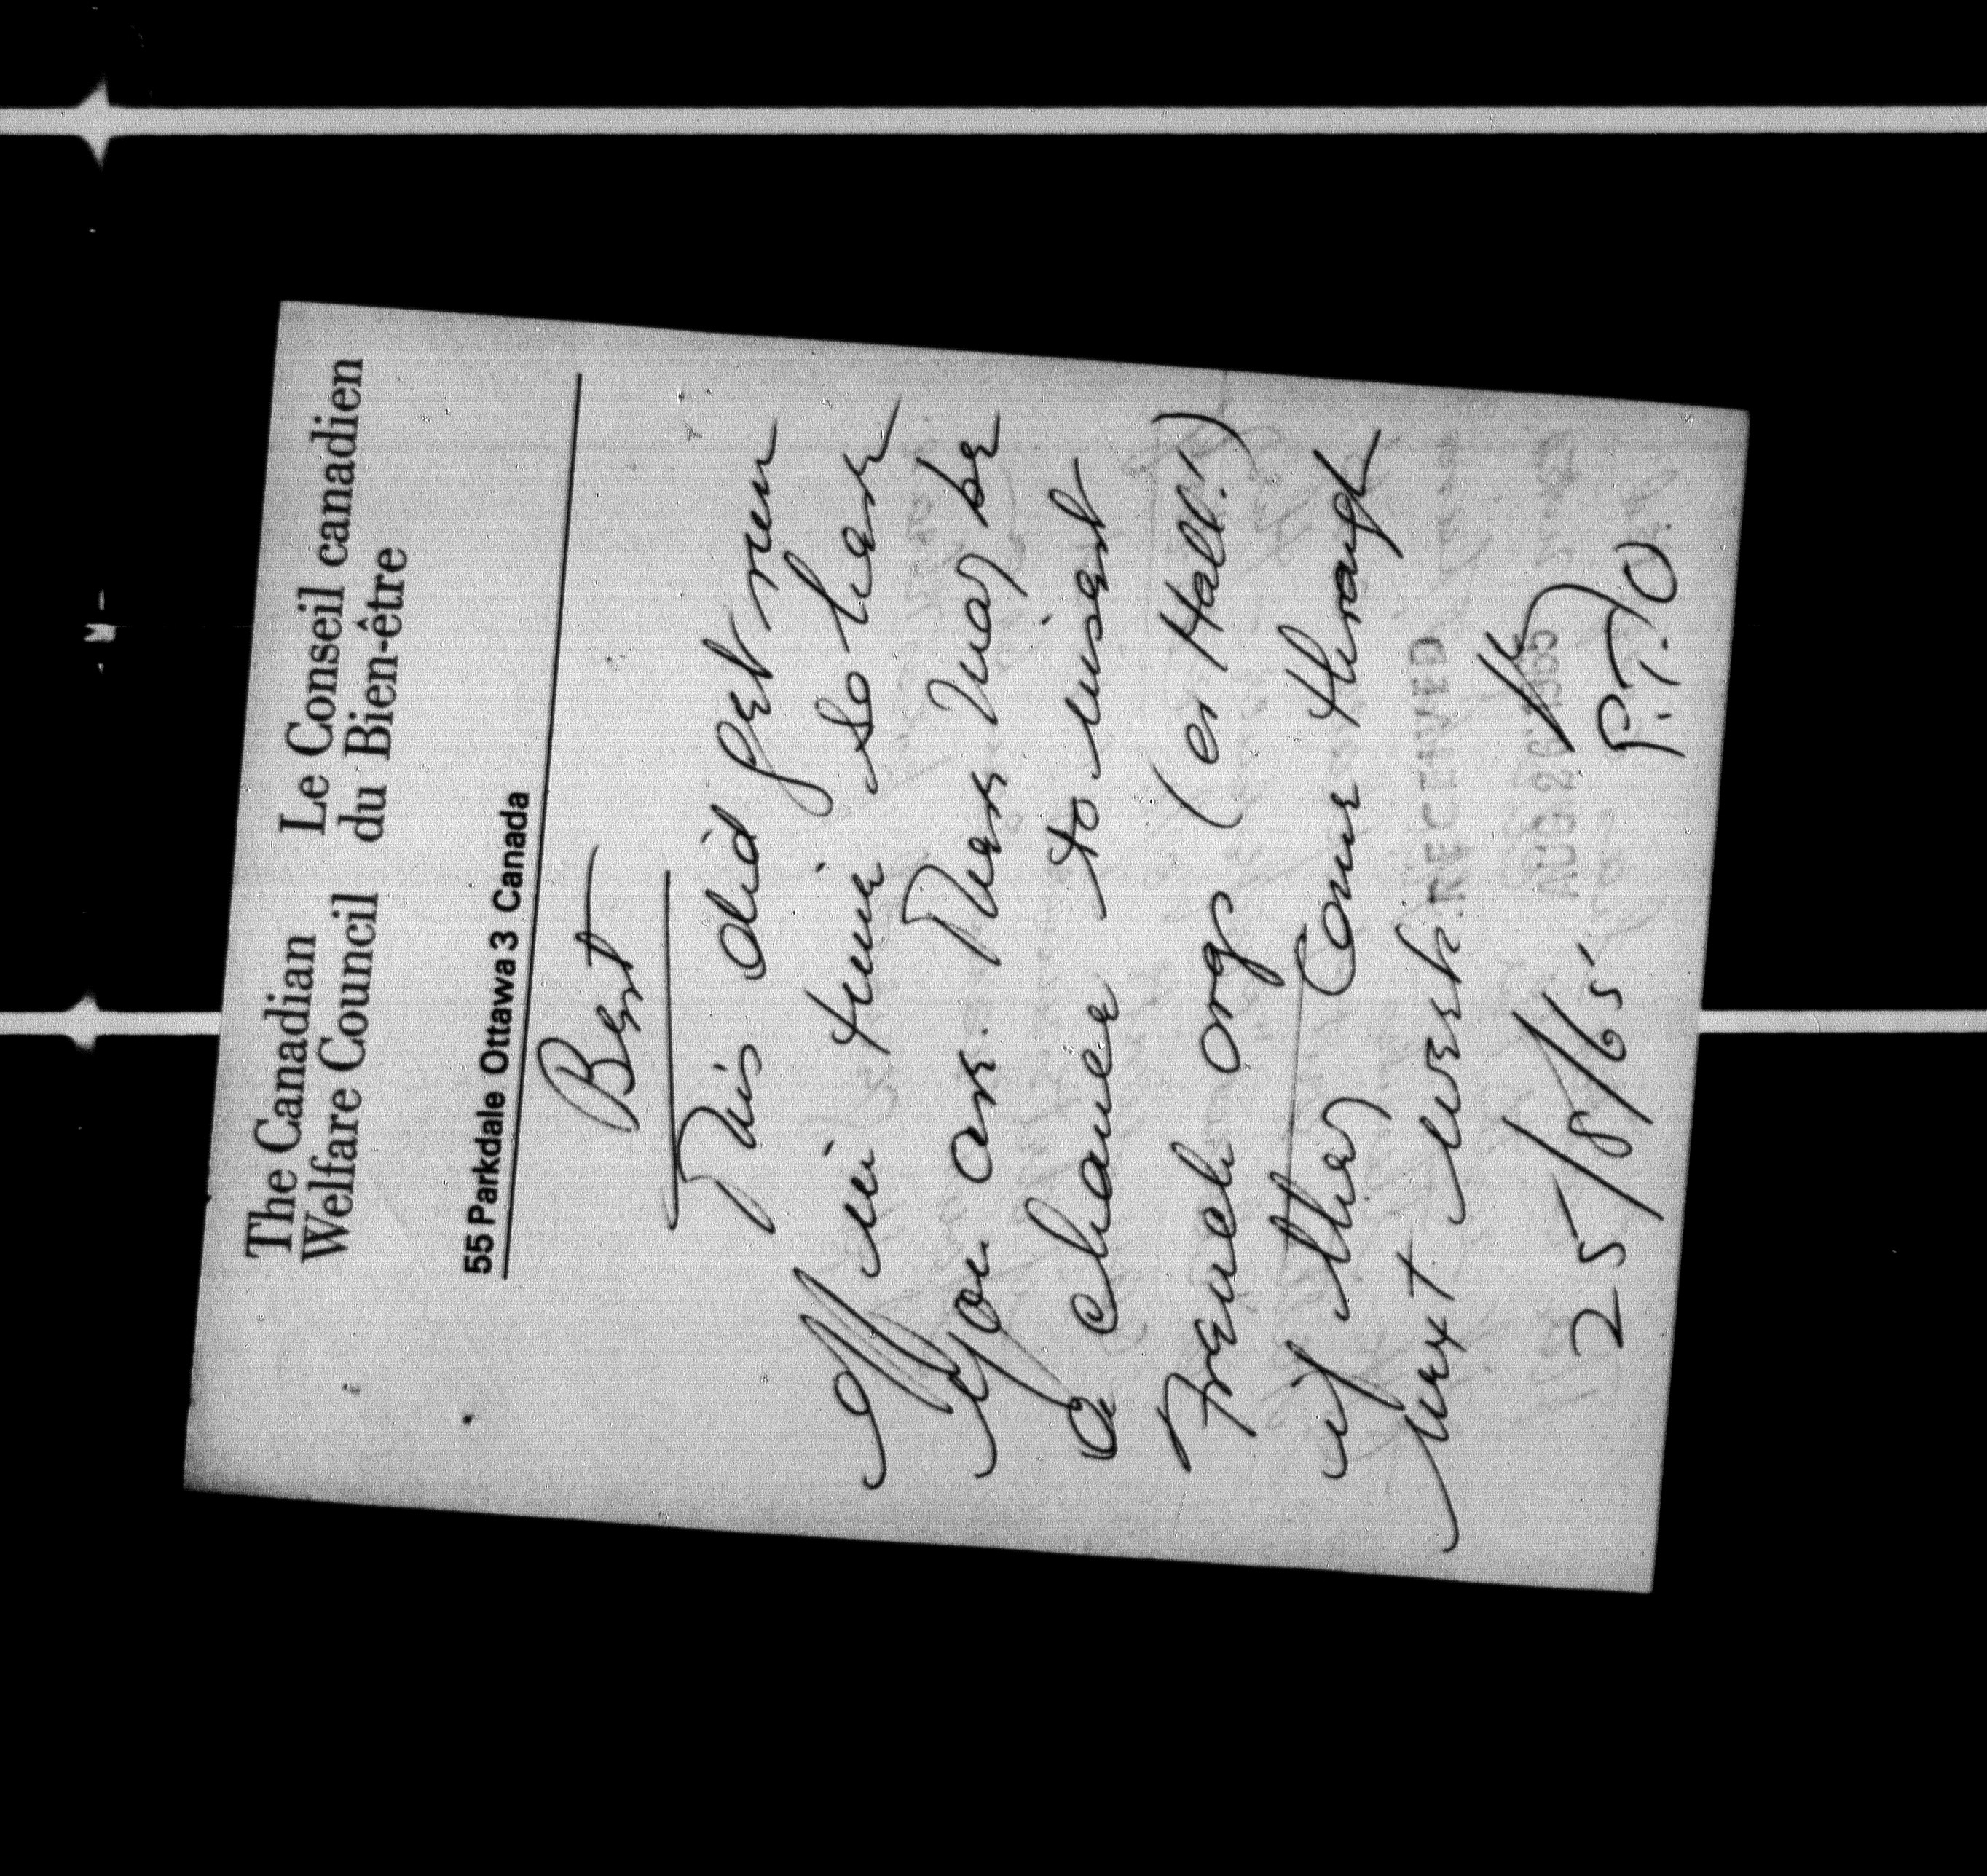 The Canadian Welfare Council
Le Conseil canadien du Bien-être
55 Parkdale Ottawa 3 Canada
Bert
This did get run
off in time so here
you are. There may be
a chance to insert
French orgs (or Hall!)
if they come through
next week.
RECEIVED
AUG 26 1965
25/8/65
P.T.O